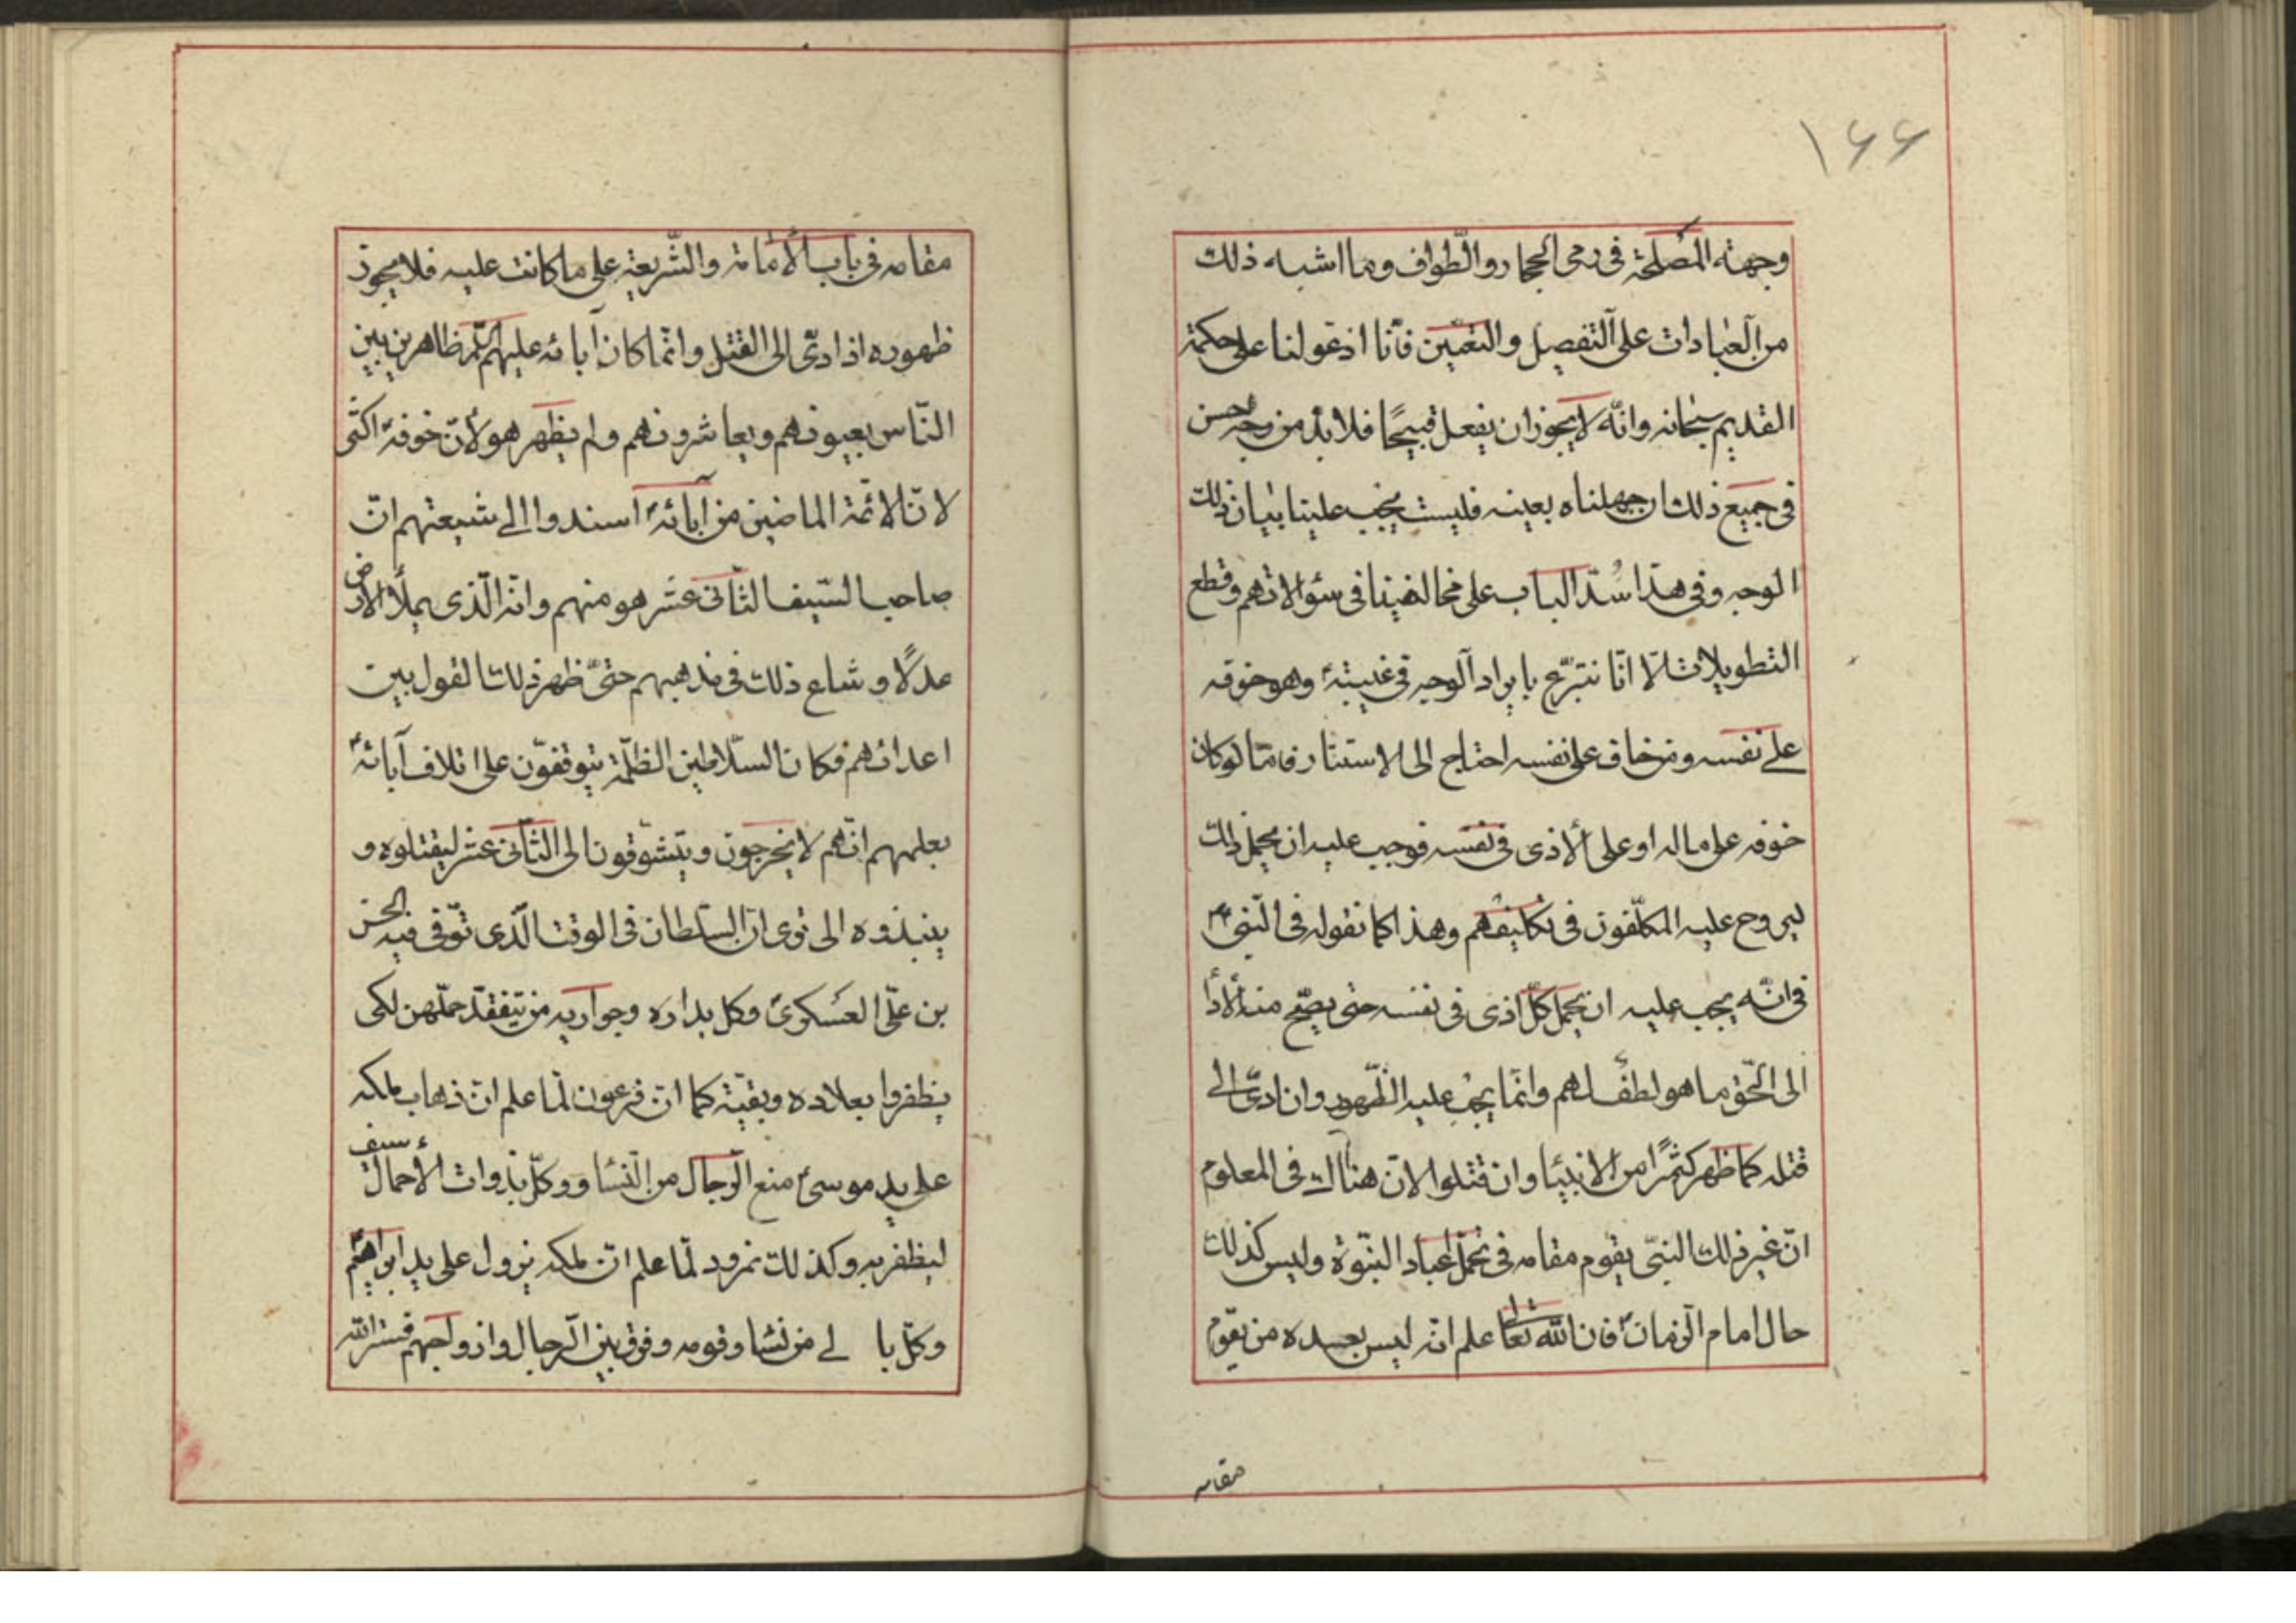 ١٦٦
وجهة المصلحة فى رمى الجمار والطواف وما اشبه ذلك
من العبادات على التفصيل والتعيين فأنّا اذ عولنا على حكمة
القديم سبحانه وانّه لا يجوز ان يفعل قبيحًا فلا بدّ من وجه حسن
فى جميع ذلك ان جهلناه بعينه فليست يجب علينا بيان ذلك
الوجه وفى هذا سُدّ الباب على مخالفينا فى سئوالاتهم وقطع
التطويلات الّا انّا نتبرّع بايراد الوجه فى غيبتهٴ وهو خوفه
على نفسه ومن خاف على نفسه احتاج الى الاستتار فامّا لو كان
خوفه على ماله او على الأذى فى نفسه فوجب عليه ان يحمل ذلك
ليروح عليه المكلّفون فى تكليفهم وهذا كما نقوله فى النّبى ص
فى انّه يجب عليه ان يحمل كلّ اذى فى نفسه حتى يصحّ منه الأدا
الى الخق ما هو لطف لهم وانّما يجب عليه الظّهور وان ادّى الى
قتله كما ظهر كثيرًا من الانبيٰا وان قتلوا لانّ هناك فى المعلوم
انّ غير ذلك النبىّ يقوم مقامه فى تحمّل اعباد النبّوة وليس كذلك
حال امام الزمانٴ فان الله تعالى علم انه ليس بعده من يقوم
مقامه
مقامه فى باب الأمامة والشّريعة على ما كانت عليه فلا يجوز
ظهوره اذا ادّى الى القتل وانّما كان آبائه عليهم السّلم ظاهرين بين
النّاس بعيونهم ويعاشرونهم ولم يظهر هو لأنّ خوفهٴ اكثى
لانّ الائمّة الماضين من آبائهٴ اسندوا الى شيعتهم انّ
صاحب السّيف الثانى عشر هو منهم وانه الّذى يملأ الارض
عدلًا وشاع ذلك فى مذهبهم حتىّ ظهر ذلك القول بين
اعدائهم فكان السّلاطين الظلّمة يتوقفّون على اتلاف آبائهٴ
بعلمهم انّهم لا يخرجون ويتشوّقون الى الثّانى عشر ليقتلوه و
ينبذوه الى ترى انّ السّلطان فى الوقت الّذى توّفى فيه الحسن
بن علّى العسكرىٴ وكل بداره وجواريه من يتفقدّ حملّهن لكى
يظفروا بعلاده وبقيّة كما انّ فرعون لمّا علم انّ ذهاب ملكه
على يد موسىٴ منع الرّجال من النّسٰا ووكلّ بذوات الأحمال سيف
ليظفر به وكذلك نمرود لمّا علم انّ ملكه يزول على يد ابراهيمٴ
وكلّ با لے من نسٰا وقومه وفرق بين الرّجال وازواجهم فستر الله